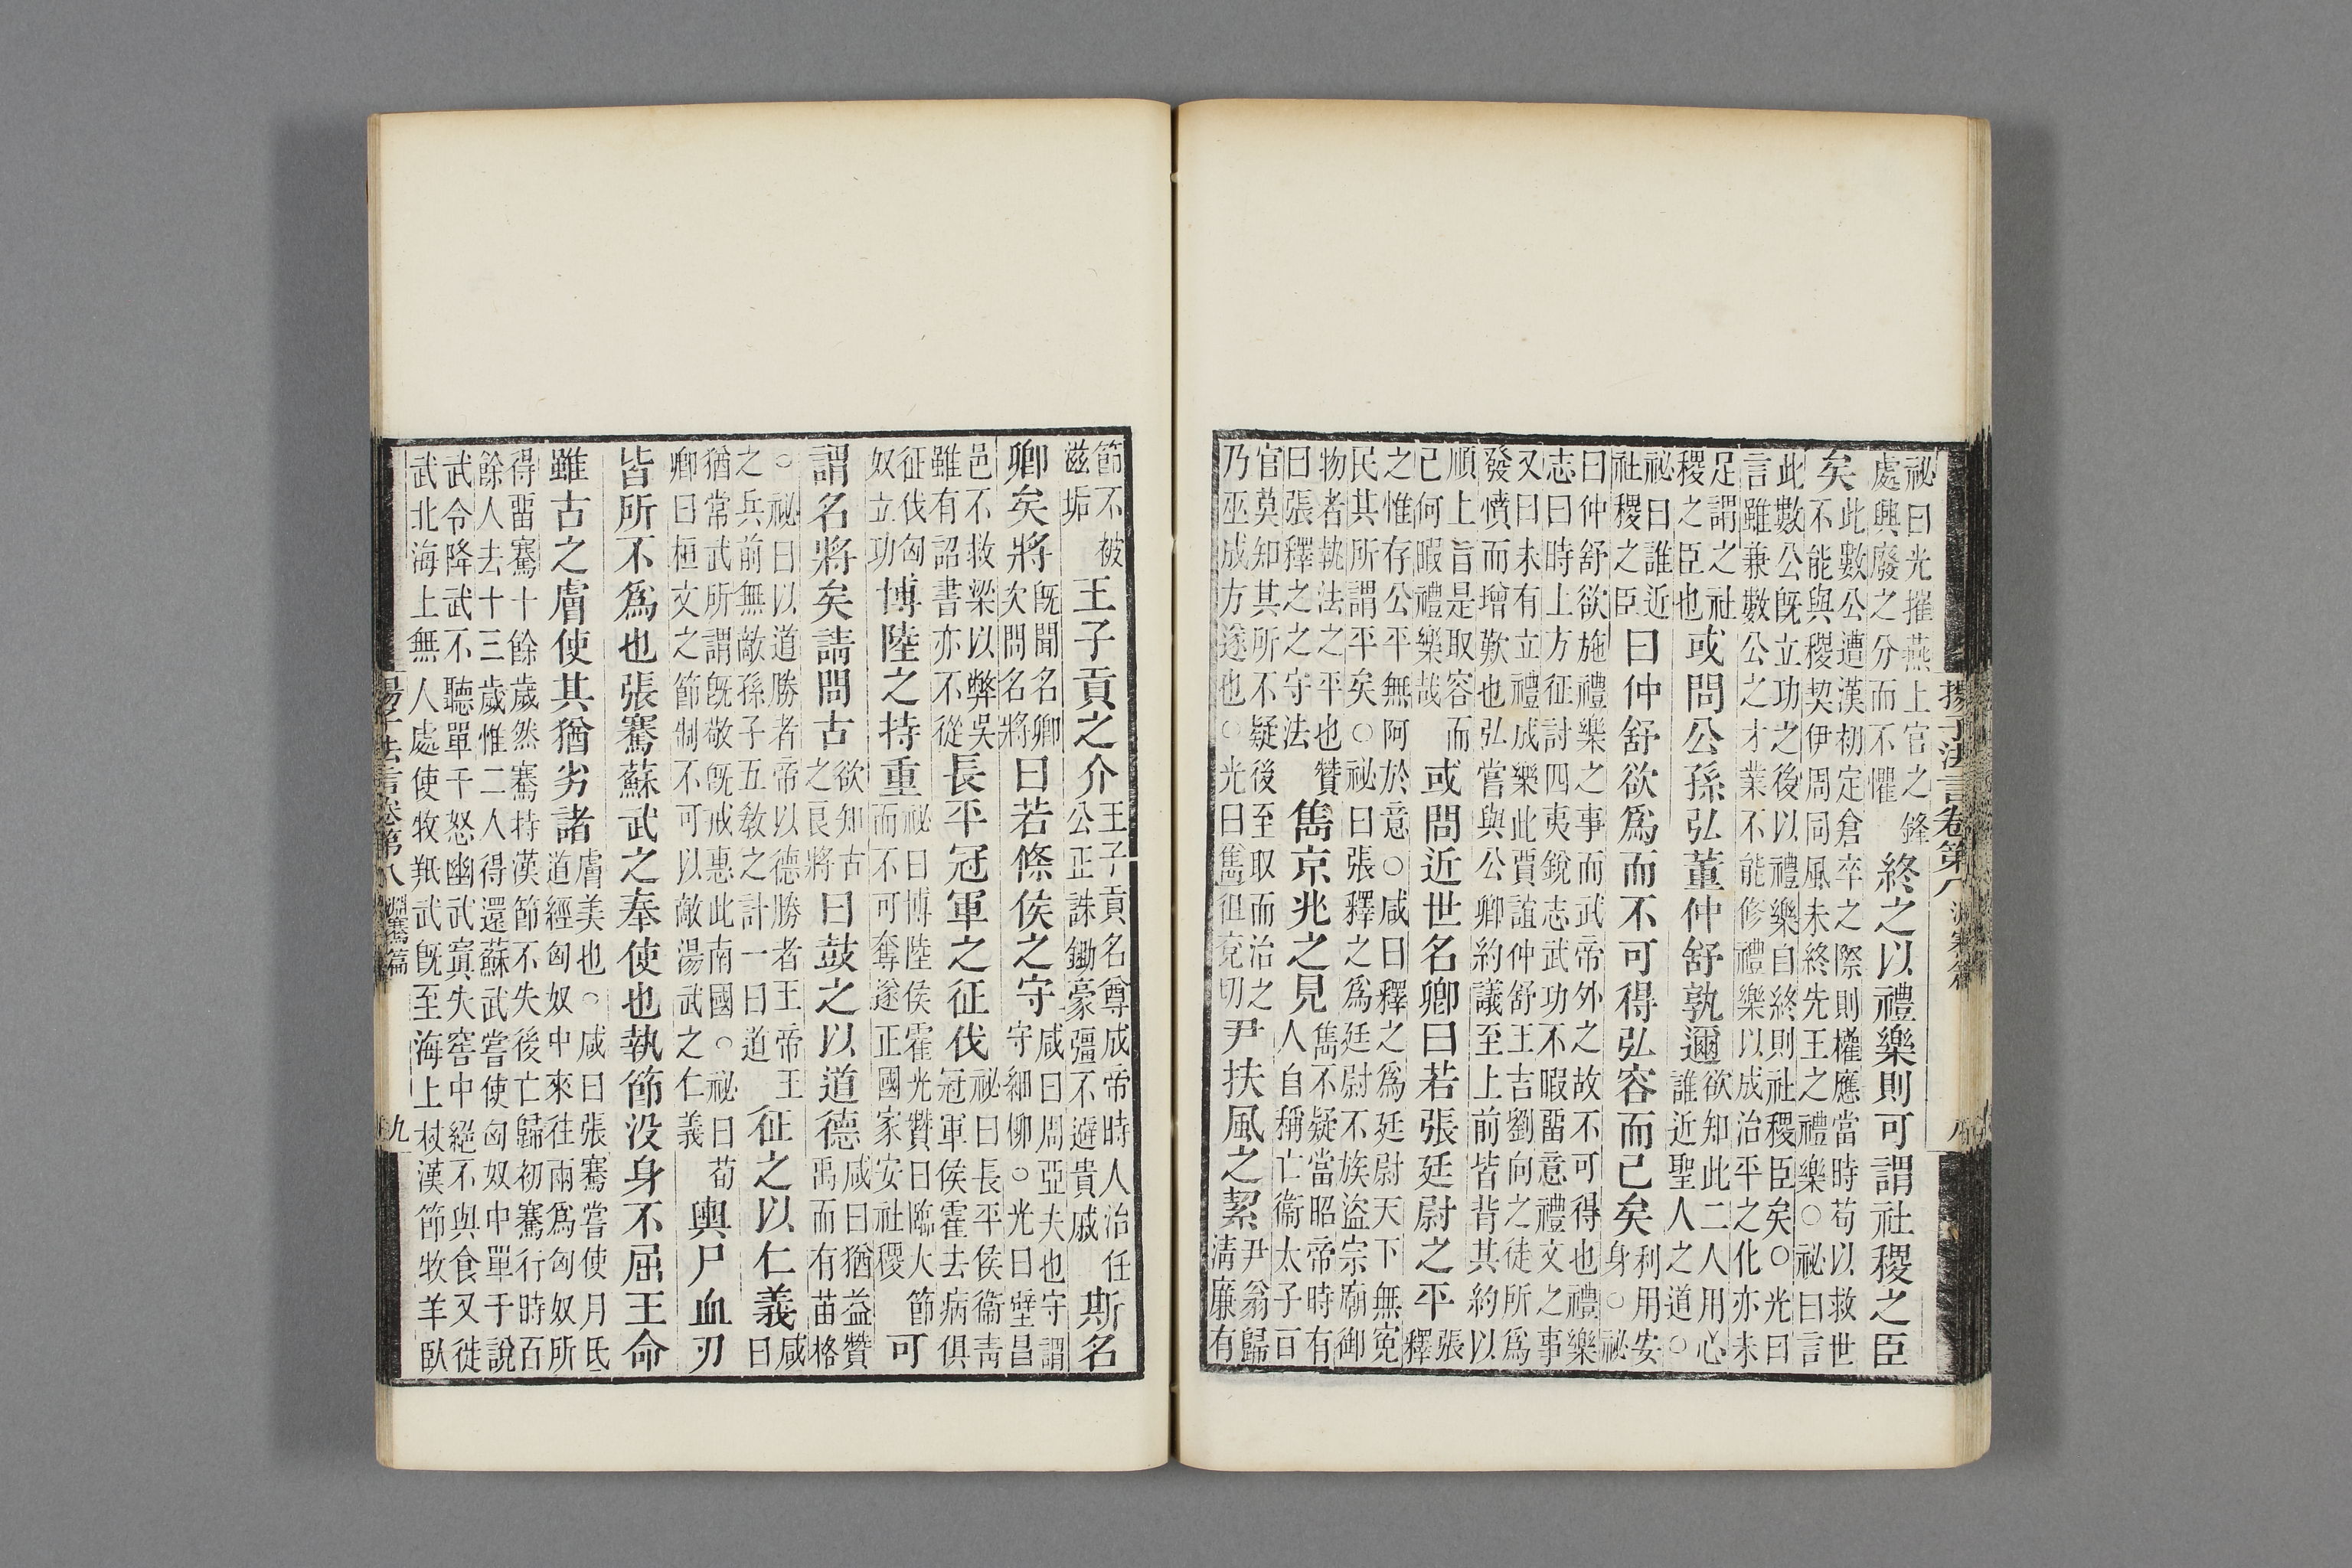 揚子法言卷第八
八
祕曰光摧燕上官之鋒
處興廢之分而不懼
終之以禮樂則可謂社稷之臣
矣
此數公遭漢初定倉卒之際則權應當時苟以救世
不能與稷契伊周同風未終先王之禮樂○祕曰言
此數公既立功之後以禮樂自終則社稷臣矣○光曰
言雖兼數公之才業不能修禮樂以成治平之化亦未
足謂之社
稷之臣也
或問公孫弘董仲舒孰邇
欲知此二人用心
誰近聖人之道○
祕曰誰近
社稷之臣
曰仲舒欲爲而不可得弘容而已矣
利用安
身○祕
曰仲舒欲施禮樂之事而武帝外之故不可得也禮樂
志曰時上方征討四夷銳志武功不暇畱意禮文之事
又曰未有立禮成樂此賈誼仲舒王吉劉向之徒所爲
發憤而增歎也弘嘗與公卿約議至上前皆背其約以
順上旨是取容而
已何暇禮樂哉
或問近世名卿曰若張廷尉之平
張
釋
之惟存公平無阿於意○咸曰釋之爲廷尉天下無寃
民其所謂平矣○祕曰張釋之爲廷尉不族盜宗廟御
物者執法之平也贊
曰張釋之之守法
雋京兆之見
雋不疑當昭帝時有
人自稱亡衞太子百
官莫知其所不疑後至取而治之
乃巫成方遂也○光曰雋徂兗切
尹扶風之絜
尹翁歸
清廉有
節不被
滋垢
王子貢之介
王子貢名尊成帝時人治任
公正誅鋤豪彊不避貴戚
斯名
卿矣將
既聞名卿
次問名將
曰若條侯之守
咸曰周亞夫也守謂
守細柳○光曰壁昌
邑不救梁以弊吳
雖有詔書亦不從
長平冠軍之征伐
祕曰長平侯衞靑
冠軍侯霍去病俱
征伐匈
奴立功
博陸之持重
祕曰博陸侯霍光贊曰臨大節
而不可奪遂正國家安社稷
可
謂名將矣請問古
欲知古
之良將
曰鼓之以道德
咸曰猶益贊
禹而有苗格
○祕曰以道勝者帝以德勝者王帝王
之兵前無敵孫子五敎之計一曰道
征之以仁義
咸
曰
猶常武所謂既敬既戒惠此南國○祕曰荀
卿曰桓文之節制不可以敵湯武之仁義
輿尸血刃
皆所不爲也張騫蘇武之奉使也執節没身不屈王命
雖古之膚使其猶劣諸
膚美也○咸曰張騫嘗使月氏
道經匈奴中來往兩爲匈奴所
得畱騫十餘歲然騫持漢節不失後亡歸初騫行時百
餘人去十三歲惟二人得還蘇武嘗使匈奴中單于說
武令降武不聽單于怒幽武寘失窖中絕不與食又徙
武北海上無人處使牧羝武既至海上杖漢節牧羊臥
揚子法言卷第八
淵騫篇
九